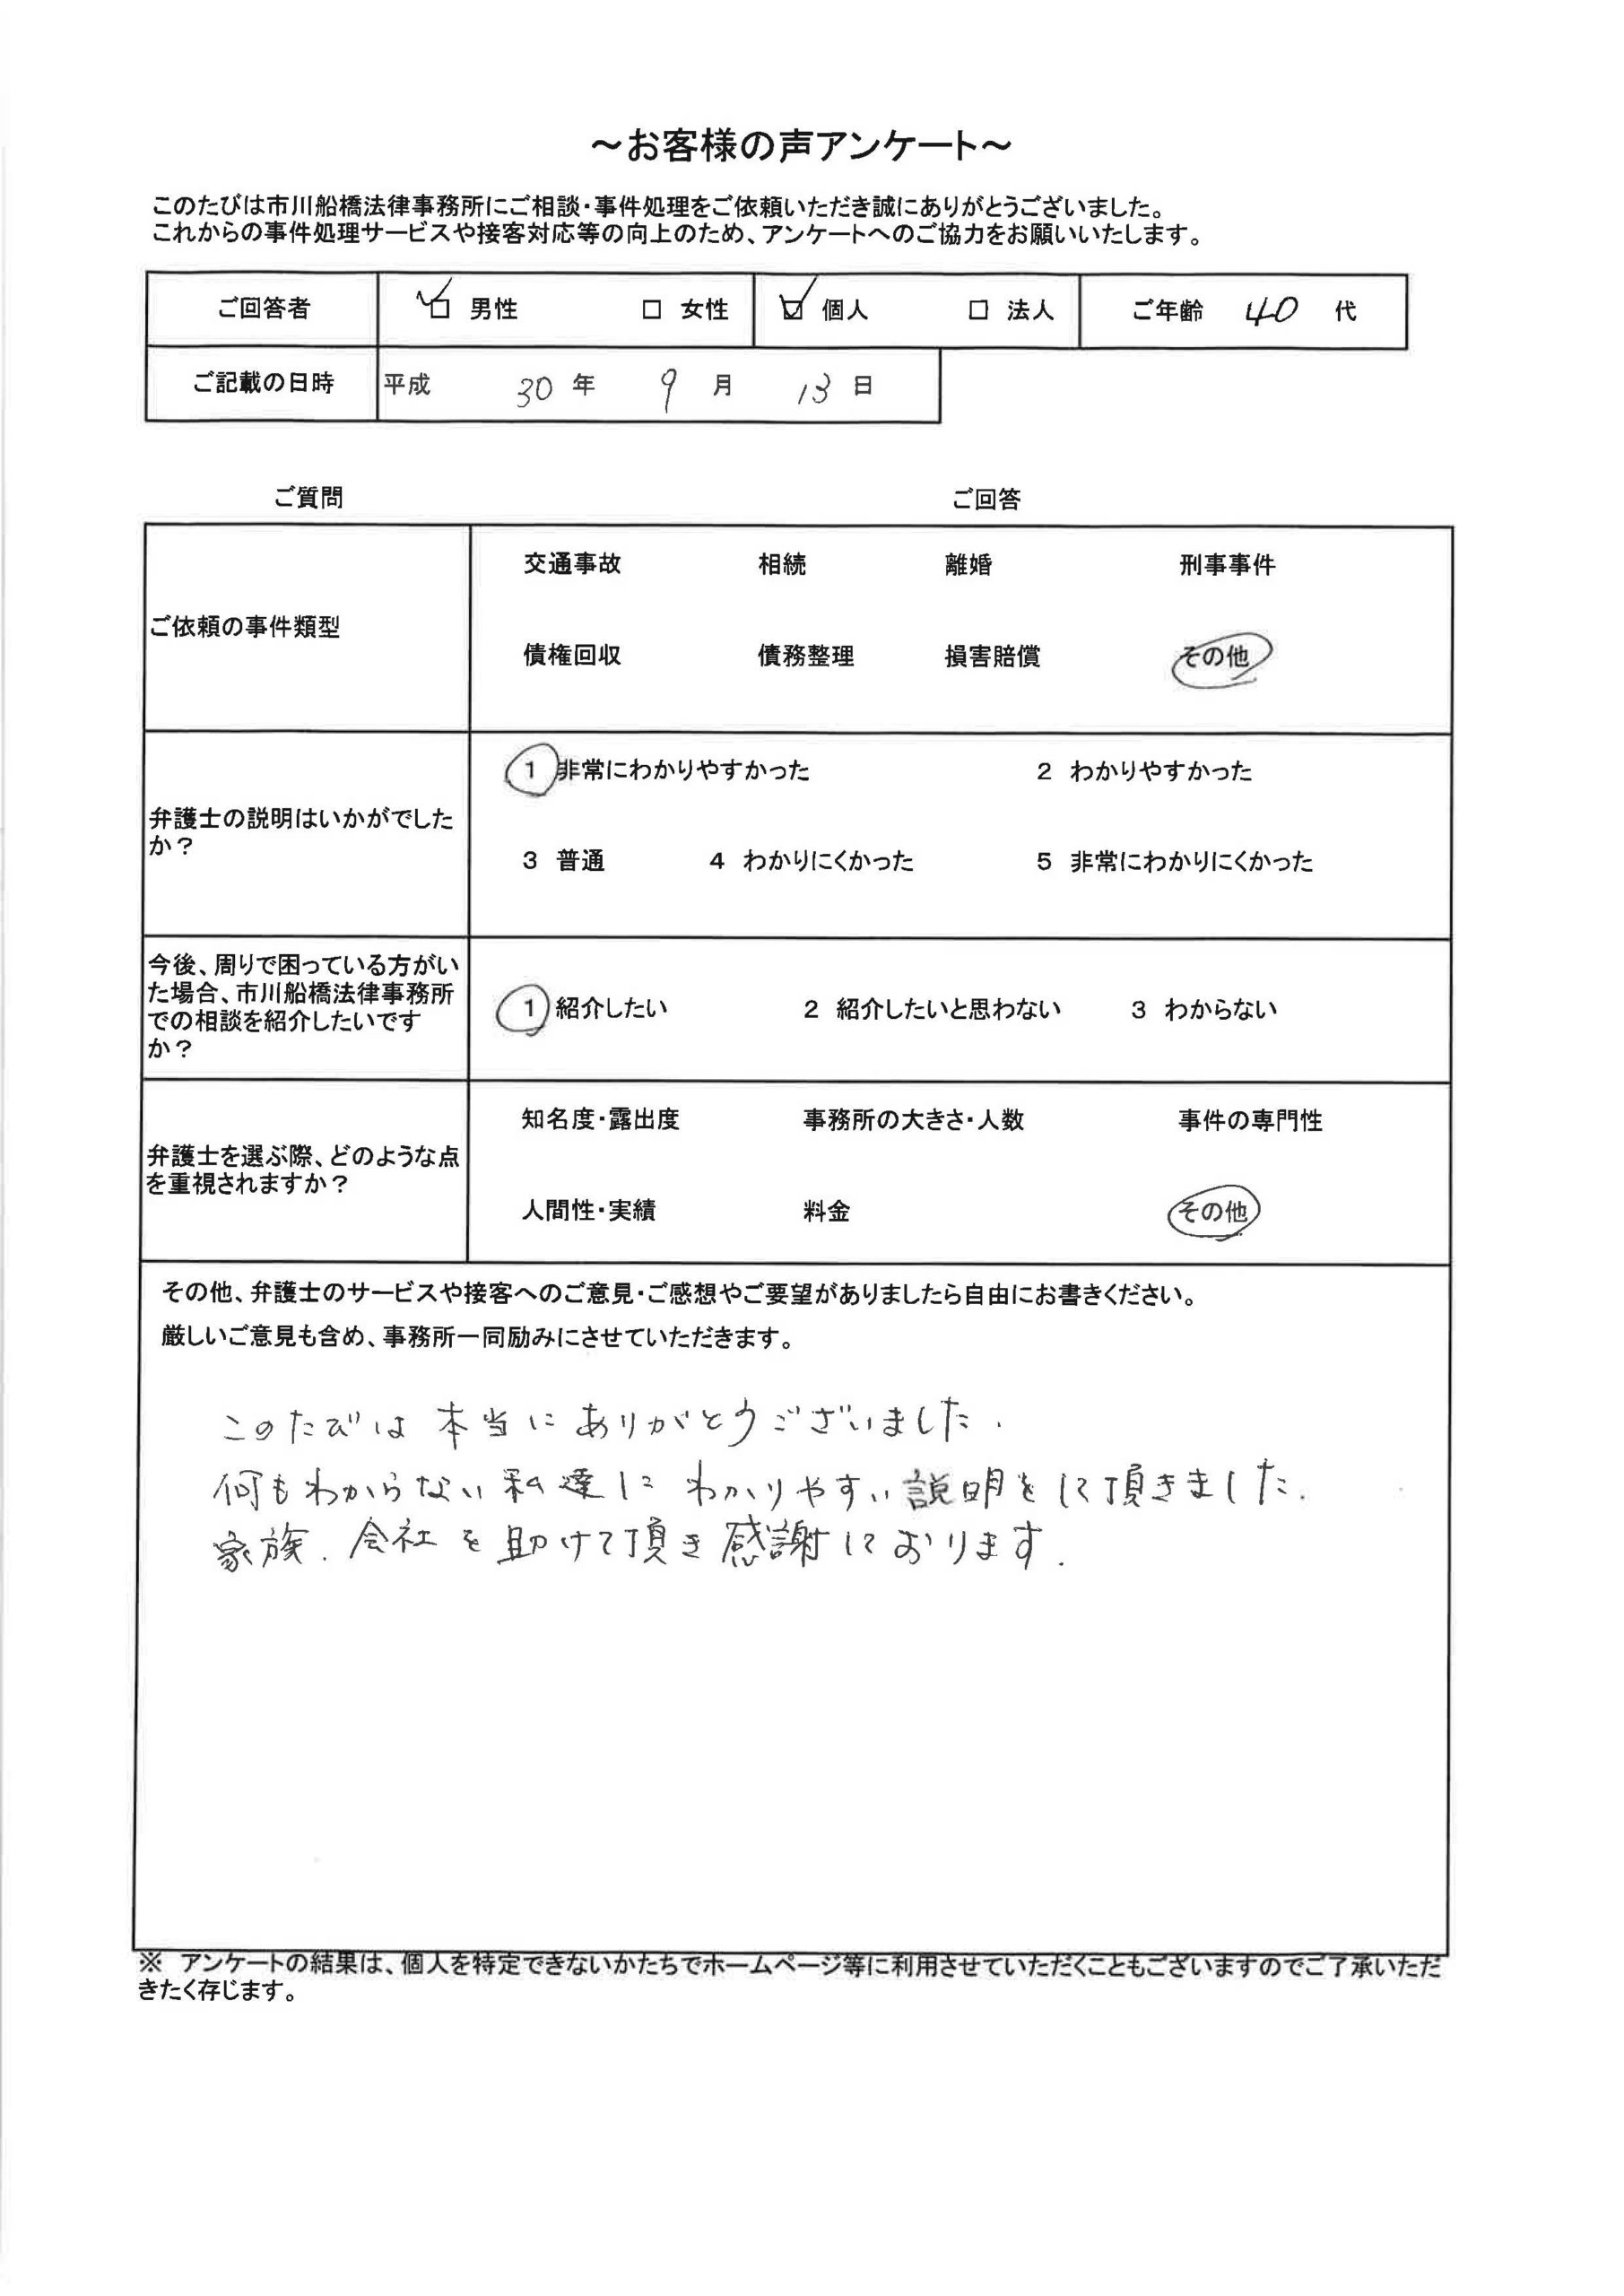 ～お客様の声アンケート～
このたびは市川船橋法律事務所にご相談・事件処理をご依頼いただき誠にありがとうございました。
これからの事件処理サービスや接客対応等の向上のため、アンケートへのご協力をお願いいたします。
ご回答者 ☑ 男性 □ 女性 ☑ 個人 □ 法人 ご年齢 40 代
ご記載の日時 平成 30 年 9 月 13 日
ご質問 ご回答
ご依頼の事件類型
交通事故 相続 離婚 刑事事件
債権回収 債務整理 損害賠償 その他
弁護士の説明はいかがでした
か？
1 非常にわかりやすかった 2 わかりやすかった
3 普通 4 わかりにくかった 5 非常にわかりにくかった
今後、周りで困っている方がい
た場合、市川船橋法律事務所
での相談を紹介したいです
か？
1 紹介したい 2 紹介したいと思わない 3 わからない
弁護士を選ぶ際、どのような点
を重視されますか？
知名度・露出度 事務所の大きさ・人数 事件の専門性
人間性・実績 料金 その他
その他、弁護士のサービスや接客へのご意見・ご感想やご要望がありましたら自由にお書きください。
厳しいご意見も含め、事務所一同励みにさせていただきます。
このたびは本当にありがとうございました.
何もわからない私達にわかりやすい説明をして頂きました.
家族.会社を助けて頂き感謝しております.
※ アンケートの結果は、個人を特定できないかたちでホームページ等に利用させていただくこともございますのでご了承いただ
きたく存じます。